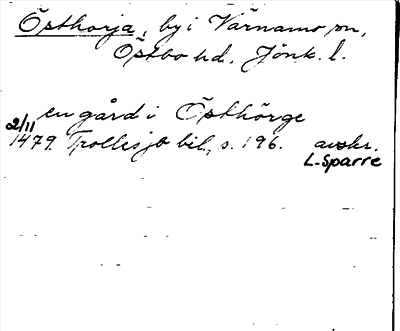 Östhorja, by i Värnamo sn,
Östbo hd. Jönk. l.
en gård i Östhörge
2/11 1479. Trollesjö bil., s. 196. avskr.
L-Sparre